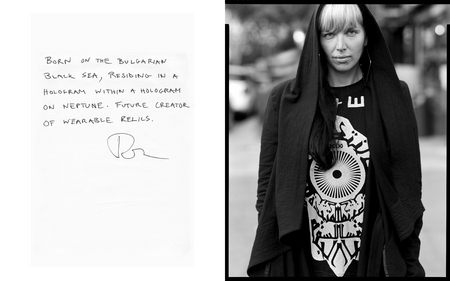 BORN ON THE BULGARIAN
BLACK SEA, RESIDING IN A
HOLOGRAM WITHIN A HOLOGRAM
ON NEPTUNE. FUTURE CREATOR
OF WEARABLE RELICS.